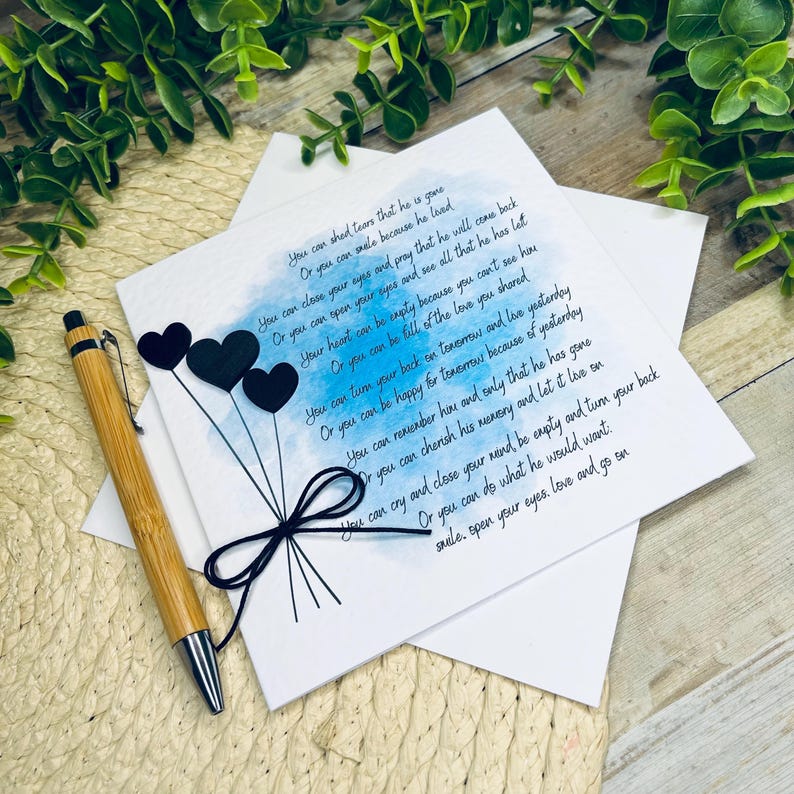 You can shed tears that he is gone
Or you can smile because he lived
You can close your eyes and pray that he will come back
Or you can open your eyes and see all that he has left
Your heart can be empty because you can't see him
Or you can be full of the love you shared
You can turn your back on tomorrow and live yesterday
Or you can be happy for tomorrow because of yesterday
You can remember him and only that he has gone
Or you can cherish his memory and let it live on
You can cry and close your mind, be empty and turn your back
Or you can do what he would want:
smile, open your eyes, love and go on